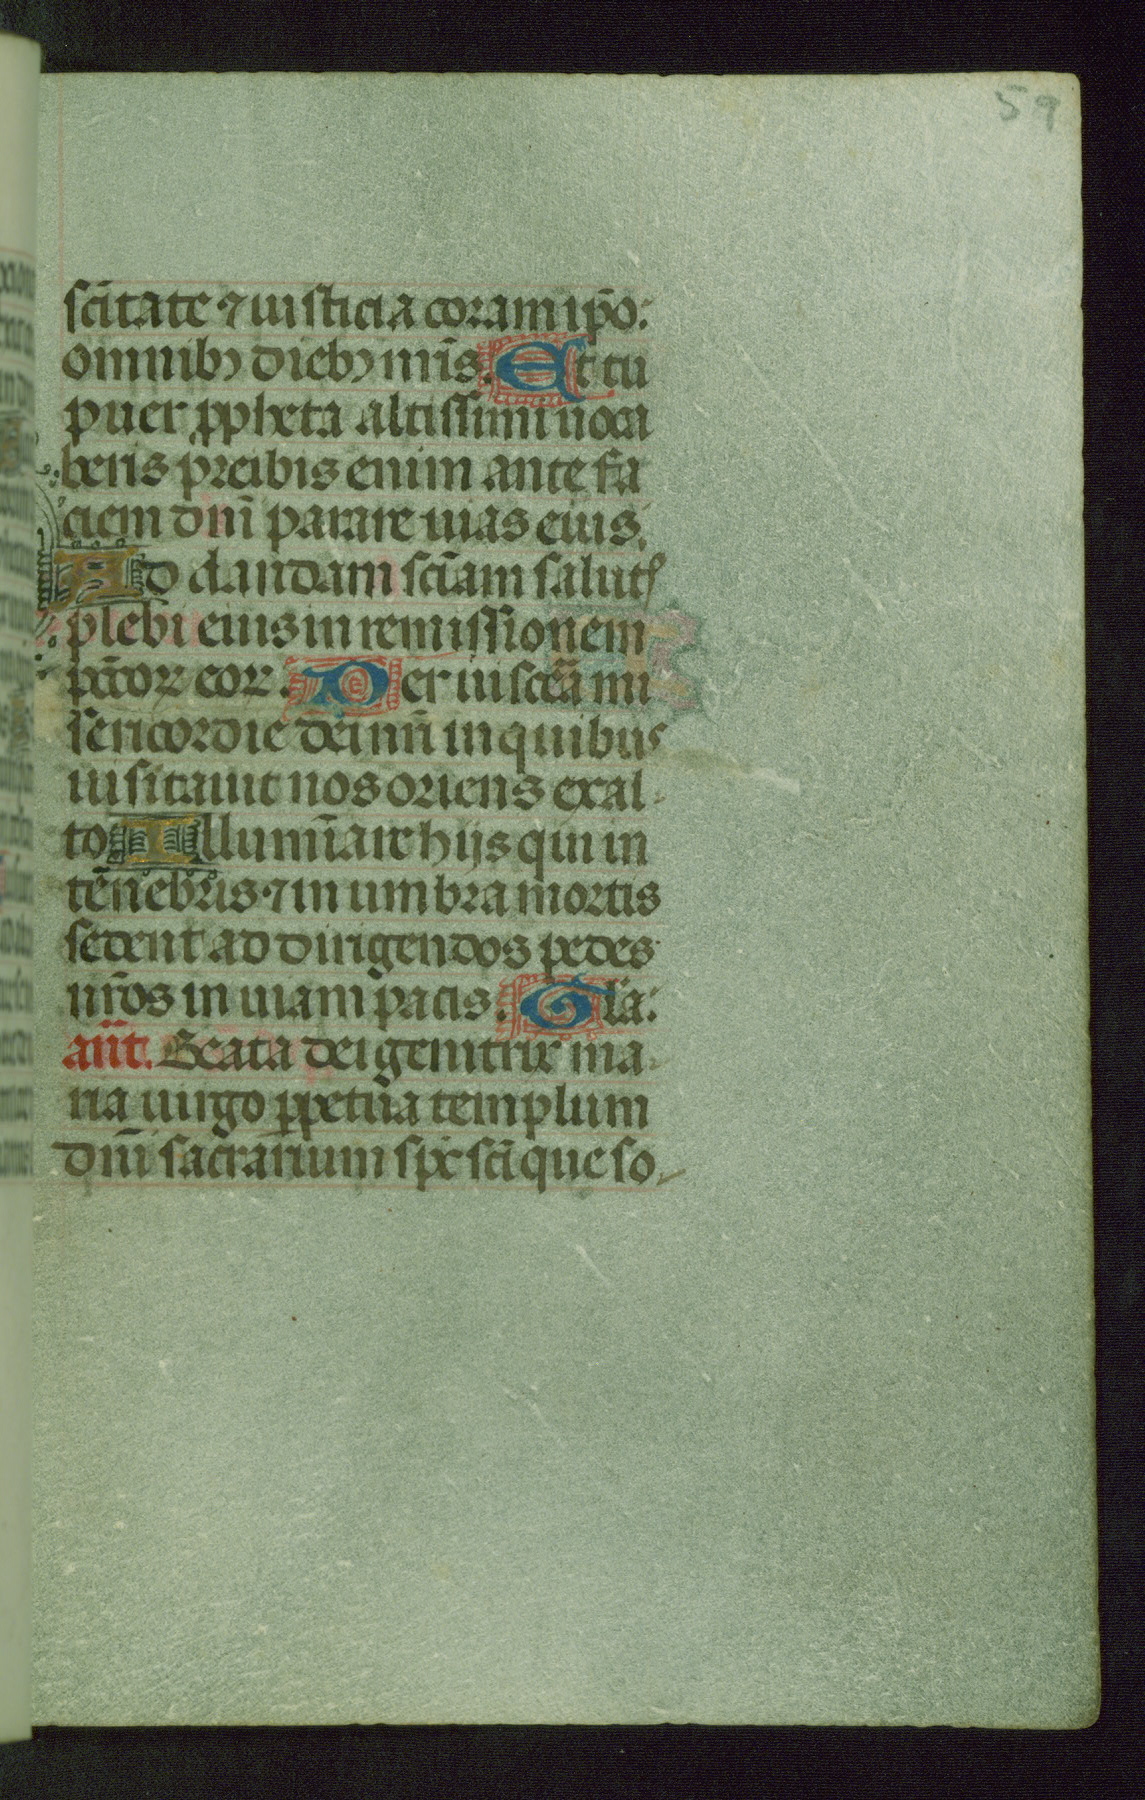 59
scı̄tate ⁊ iusticia coram ip̄o:
omnibꝫ diebꝫ nr̄is. Et tu
puer ꝓpheta altissimi uoca
beris preibis enim ante fa
ciem dn̄i parare uias eius.
Ad dandam scı̄am salutꝭ
plebi eius in remissionem
pc̄orꝝ eorꝝ. Per uiscēa mi
sericordie dei nr̄i in quibus
uisitauit nos oriens exal
to Illumīare hijs qui in
tēnebris ⁊ in umbra mortis
sedent ad dirigendos pedes
nr̄os in uiam pacis. Gl̄a:
an̄t. Beata dei genitrix ma
ria uirgo ꝑpetūa templum
dn̄i sac̄rarium spc̄ scı̄ que so